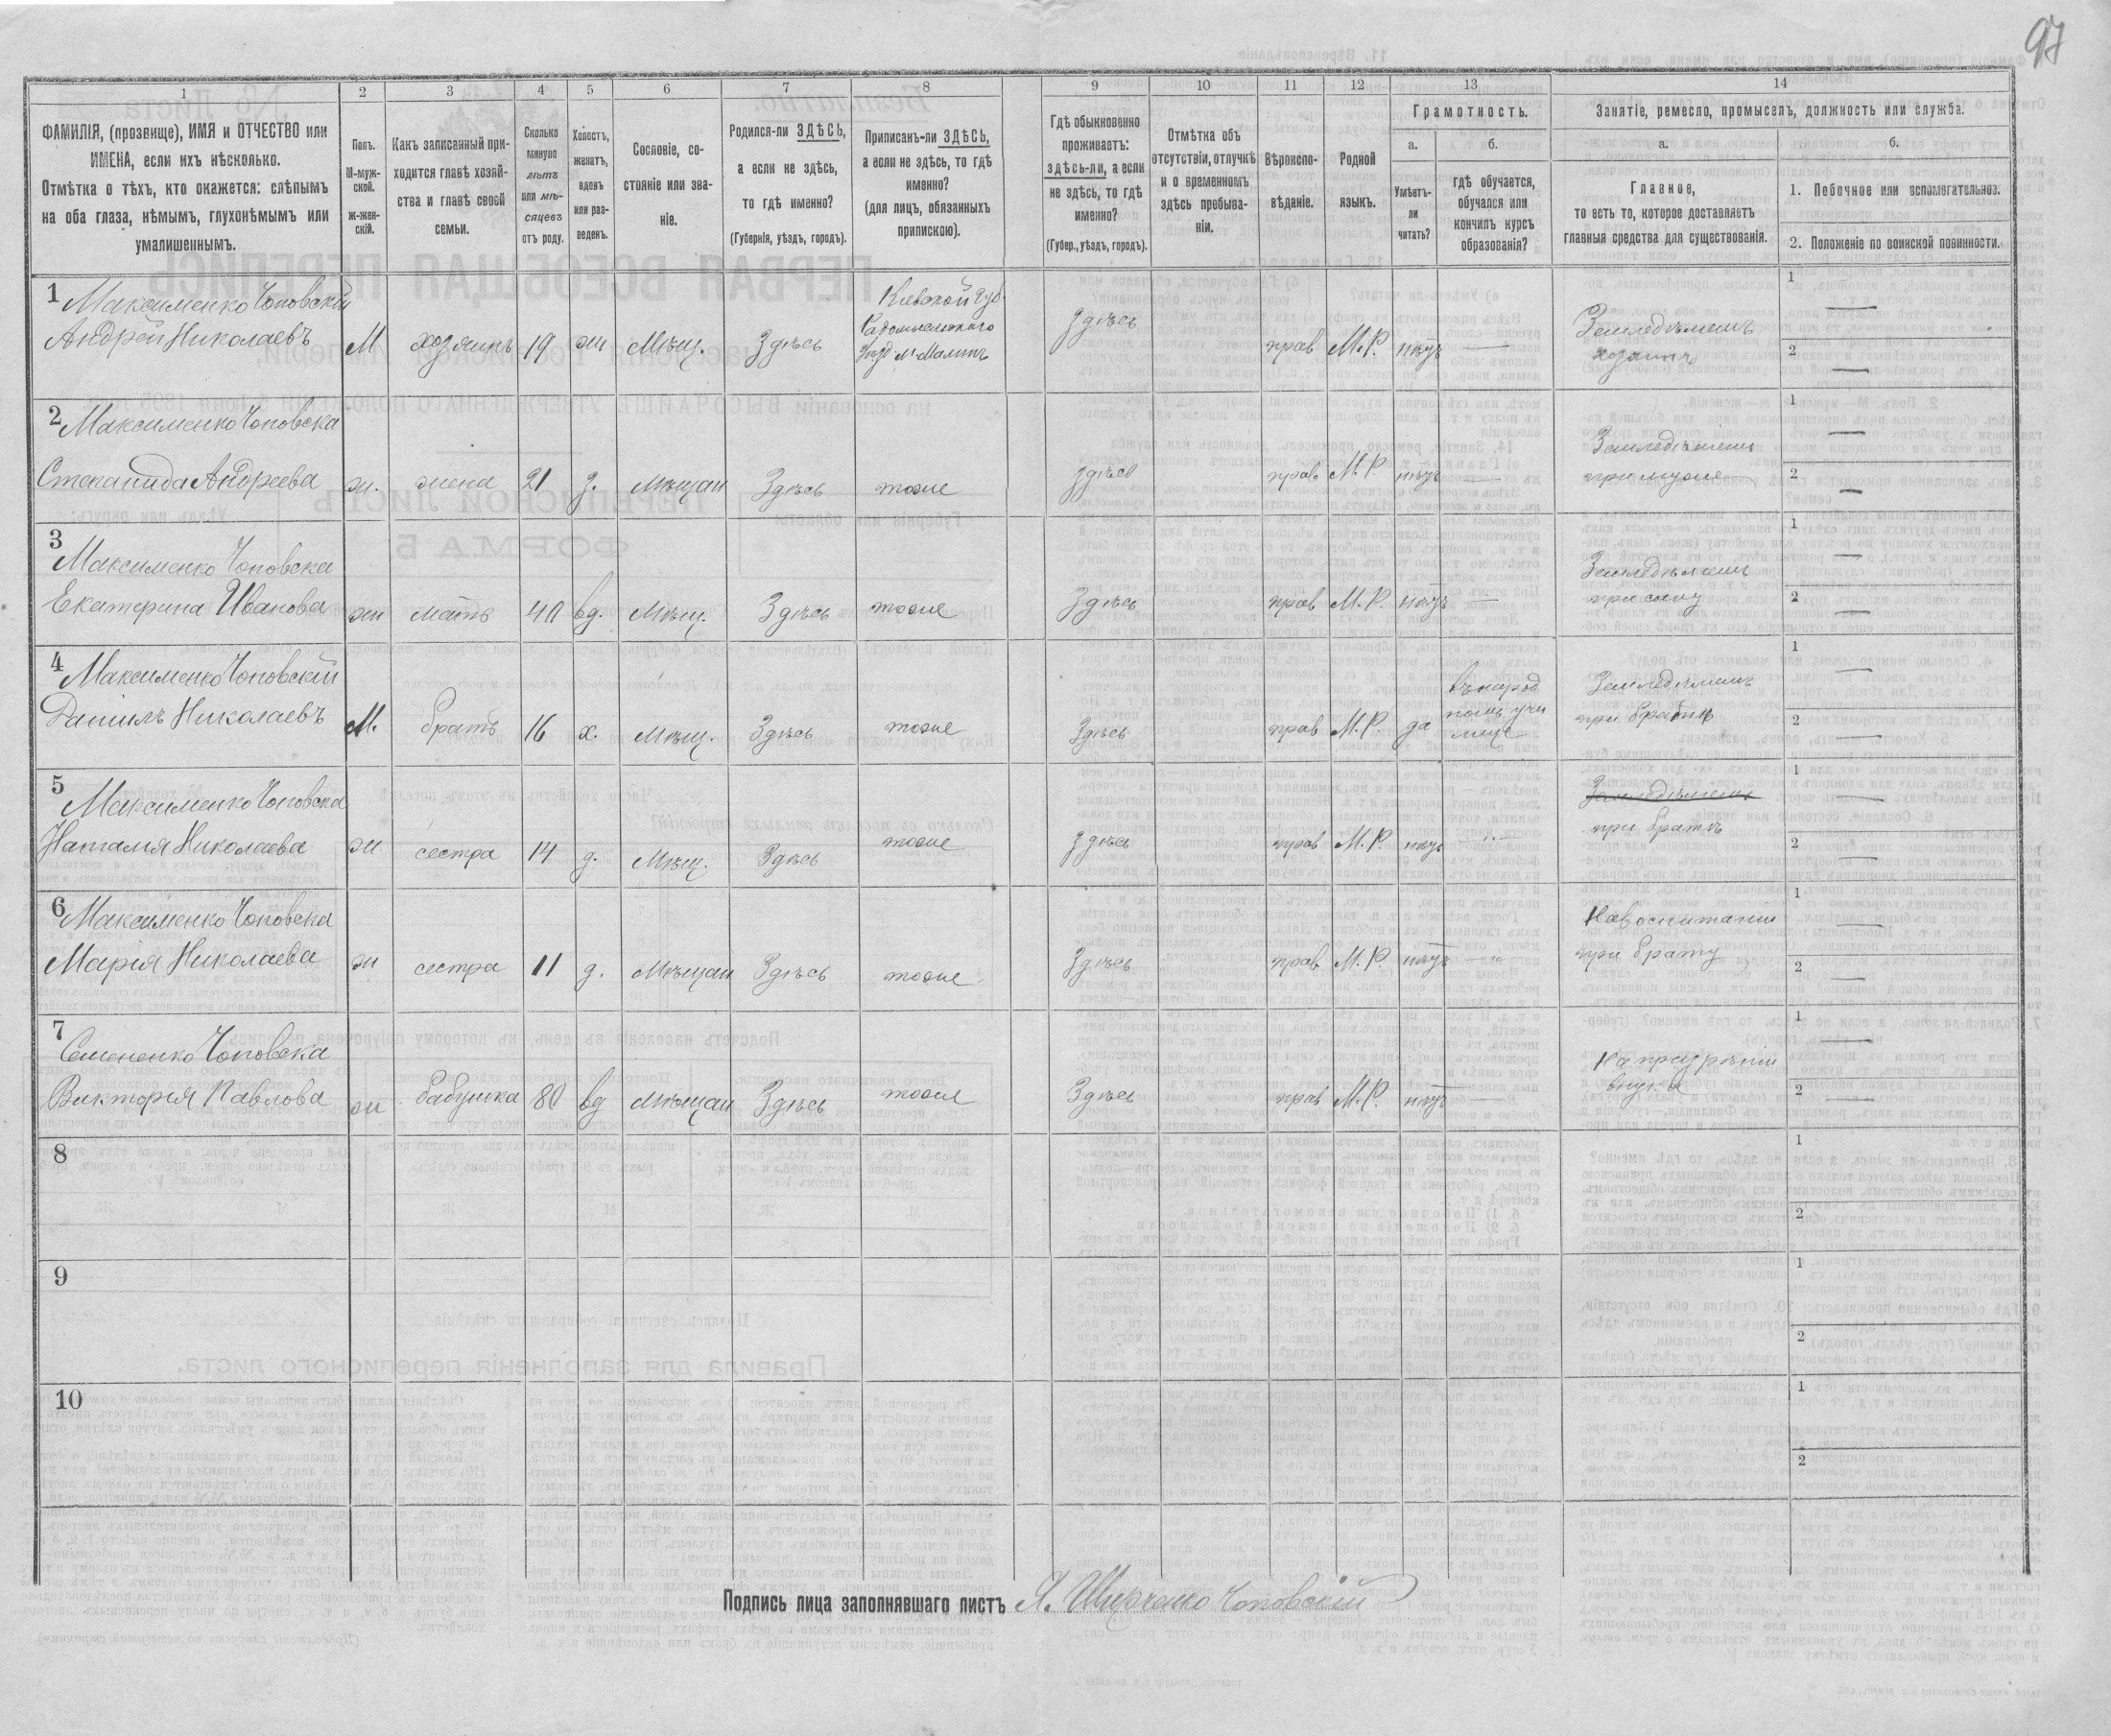 97
1 2 3 4 5 6 7 8 9 10 11 12 13 14
ФАМИЛІЯ, (прозвище), ИМЯ и ОТЧЕСТВО или
ИМЕНА, если ихъ нѣсколько.
Отмѣтка о тѣхъ, кто окажется: слѣпымъ
на оба глаза, нѣмымъ, глухонѣмымъ или
умалишеннымъ.
Полъ.
М-муж-
ской.
ж-жен-
скій.
Какъ записанный при-
ходится главѣ хозяй-
ства и главѣ своей
семьи.
Сколько
минуло
лѣтъ
или мѣ-
сяцевъ
отъ роду.
Холостъ,
женатъ,
вдовъ
или раз-
веденъ.
Сословіе, со-
стояніе или зва-
ніе.
Родился-ли ЗДѢСЬ,
а если не здѣсь,
то гдѣ именно?
(Губернія, уѣздъ, городъ).
Приписанъ-ли ЗДѢСЬ,
а если не здѣсь, то гдѣ
именно?
(для лицъ, обязанныхъ
припискою).
Гдѣ обыкновенно
проживаетъ:
здѣсь-ли, а если
не здѣсь, то гдѣ
именно?
(Губер., уѣздъ, городъ).
Отмѣтка объ
отсутствіи, отлучкѣ
и о временномъ
здѣсь пребыва-
ніи.
Вѣроиспо-
вѣданіе.
Родной
языкъ.
Грамотность.
а.
Умѣетъ-
ли
читать?
б.
гдѣ обучается,
обучался или
кончилъ курсъ
образованія?
Занятіе, ремесло, промыселъ, должность или служба.
а.
Главное,
то есть то, которое доставляетъ
главныя средства для существованія.
б.
1. Побочное или вспомогательное.
2. Положеніе по воинской повинности.
1 Максименко Чоповскій
Андрей Николаевъ
М хозяинъ 19 ж Мѣщ. Здѣсь
Кіевской губ.
Радомысльскаго
уѣзд м. Малинъ
Здѣсь прав М.Р. нѣтъ —
Земледѣлецъ
хозяинъ
1 —
2 —
2 Максименко Чоповска
Степанида Андреева ж. жена 21 з. Мѣщан Здѣсь тоже Здѣсь прав. М.Р. нѣтъ —
Земледѣлец
при мужѣ
1 —
2 —
3 Максименко Чоповска
Екатерина Иванова ж мать 40 вд. Мѣщ. Здѣсь тоже Здѣсь прав М.Р. нѣтъ —
Земледѣлец
при сыну
1 —
2 —
4 Максименко Чоповскій
Даніилъ Николаевъ М. братъ 16 х. Мѣщ. Здѣсь тоже Здѣсь прав М.Р. да
в народ
номъ учи
лище
Земледѣлецъ
при братѣ
1 —
2 —
5 Максименко Чоповска
Наталия Николаева ж сестра 14 д. Мѣщ. Здѣсь тоже Здѣсь прав М.Р. нѣтъ —
Земледѣлец
при братѣ
1 —
2 —
6 Максименко Чоповска
Марія Николаева ж сестра 11 д. Мѣщан Здѣсь тоже Здѣсь прав М.Р. нѣтъ —
На воспитаніи
при брату
1 —
2 —
7 Семененко Чоповска
Викторія Павлова ж бабушка 80 вд Мѣщан Здѣсь тоже Здѣсь прав М.Р. нѣтъ —
На призрѣніи
внука
1 —
2 —
8
1
2
9
1
2
10
1
2
Подпись лица заполнявшаго листъ Чоповскій